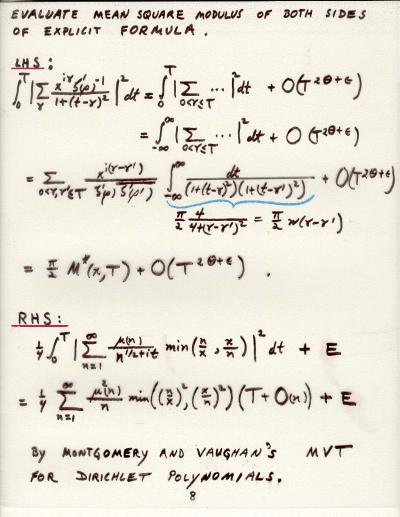 EVALUATE MEAN SQUARE MODULUS OF BOTH SIDES
OF EXPLICIT FORMULA.
LHS:
∫_0^T |∑_γ x^{iγ} ζ'(ρ)^{-1} / (1+(t-γ)^2)|^2 dt = ∫_0^T |∑_{0<γ≤T} ...|^2 dt + O(T^{2θ+ε})
= ∫_{-∞}^{∞} |∑_{0<γ≤T} ...|^2 dt + O(T^{2θ+ε})
= ∑_{0<γ,γ'≤T} x^{i(γ-γ')} / (ζ'(ρ) \overline{ζ'(ρ')}) ∫_{-∞}^{∞} dt / ((1+(t-γ)^2)(1+(t-γ')^2)) + O(T^{2θ+ε})
π/2 4/(4+(γ-γ')^2) = π/2 w(γ-γ')
= π/2 M^*(x,T) + O(T^{2θ+ε}).
RHS:
1/4 ∫_0^T |∑_{n=1}^{∞} μ(n)/n^{1/2+it} min(n/x, x/n)|^2 dt + E
= 1/4 ∑_{n=1}^{∞} μ^2(n)/n min((n/x)^2, (x/n)^2) (T+O(n)) + E
BY MONTGOMERY AND VAUGHAN'S MVT
FOR DIRICHLET POLYNOMIALS.
8